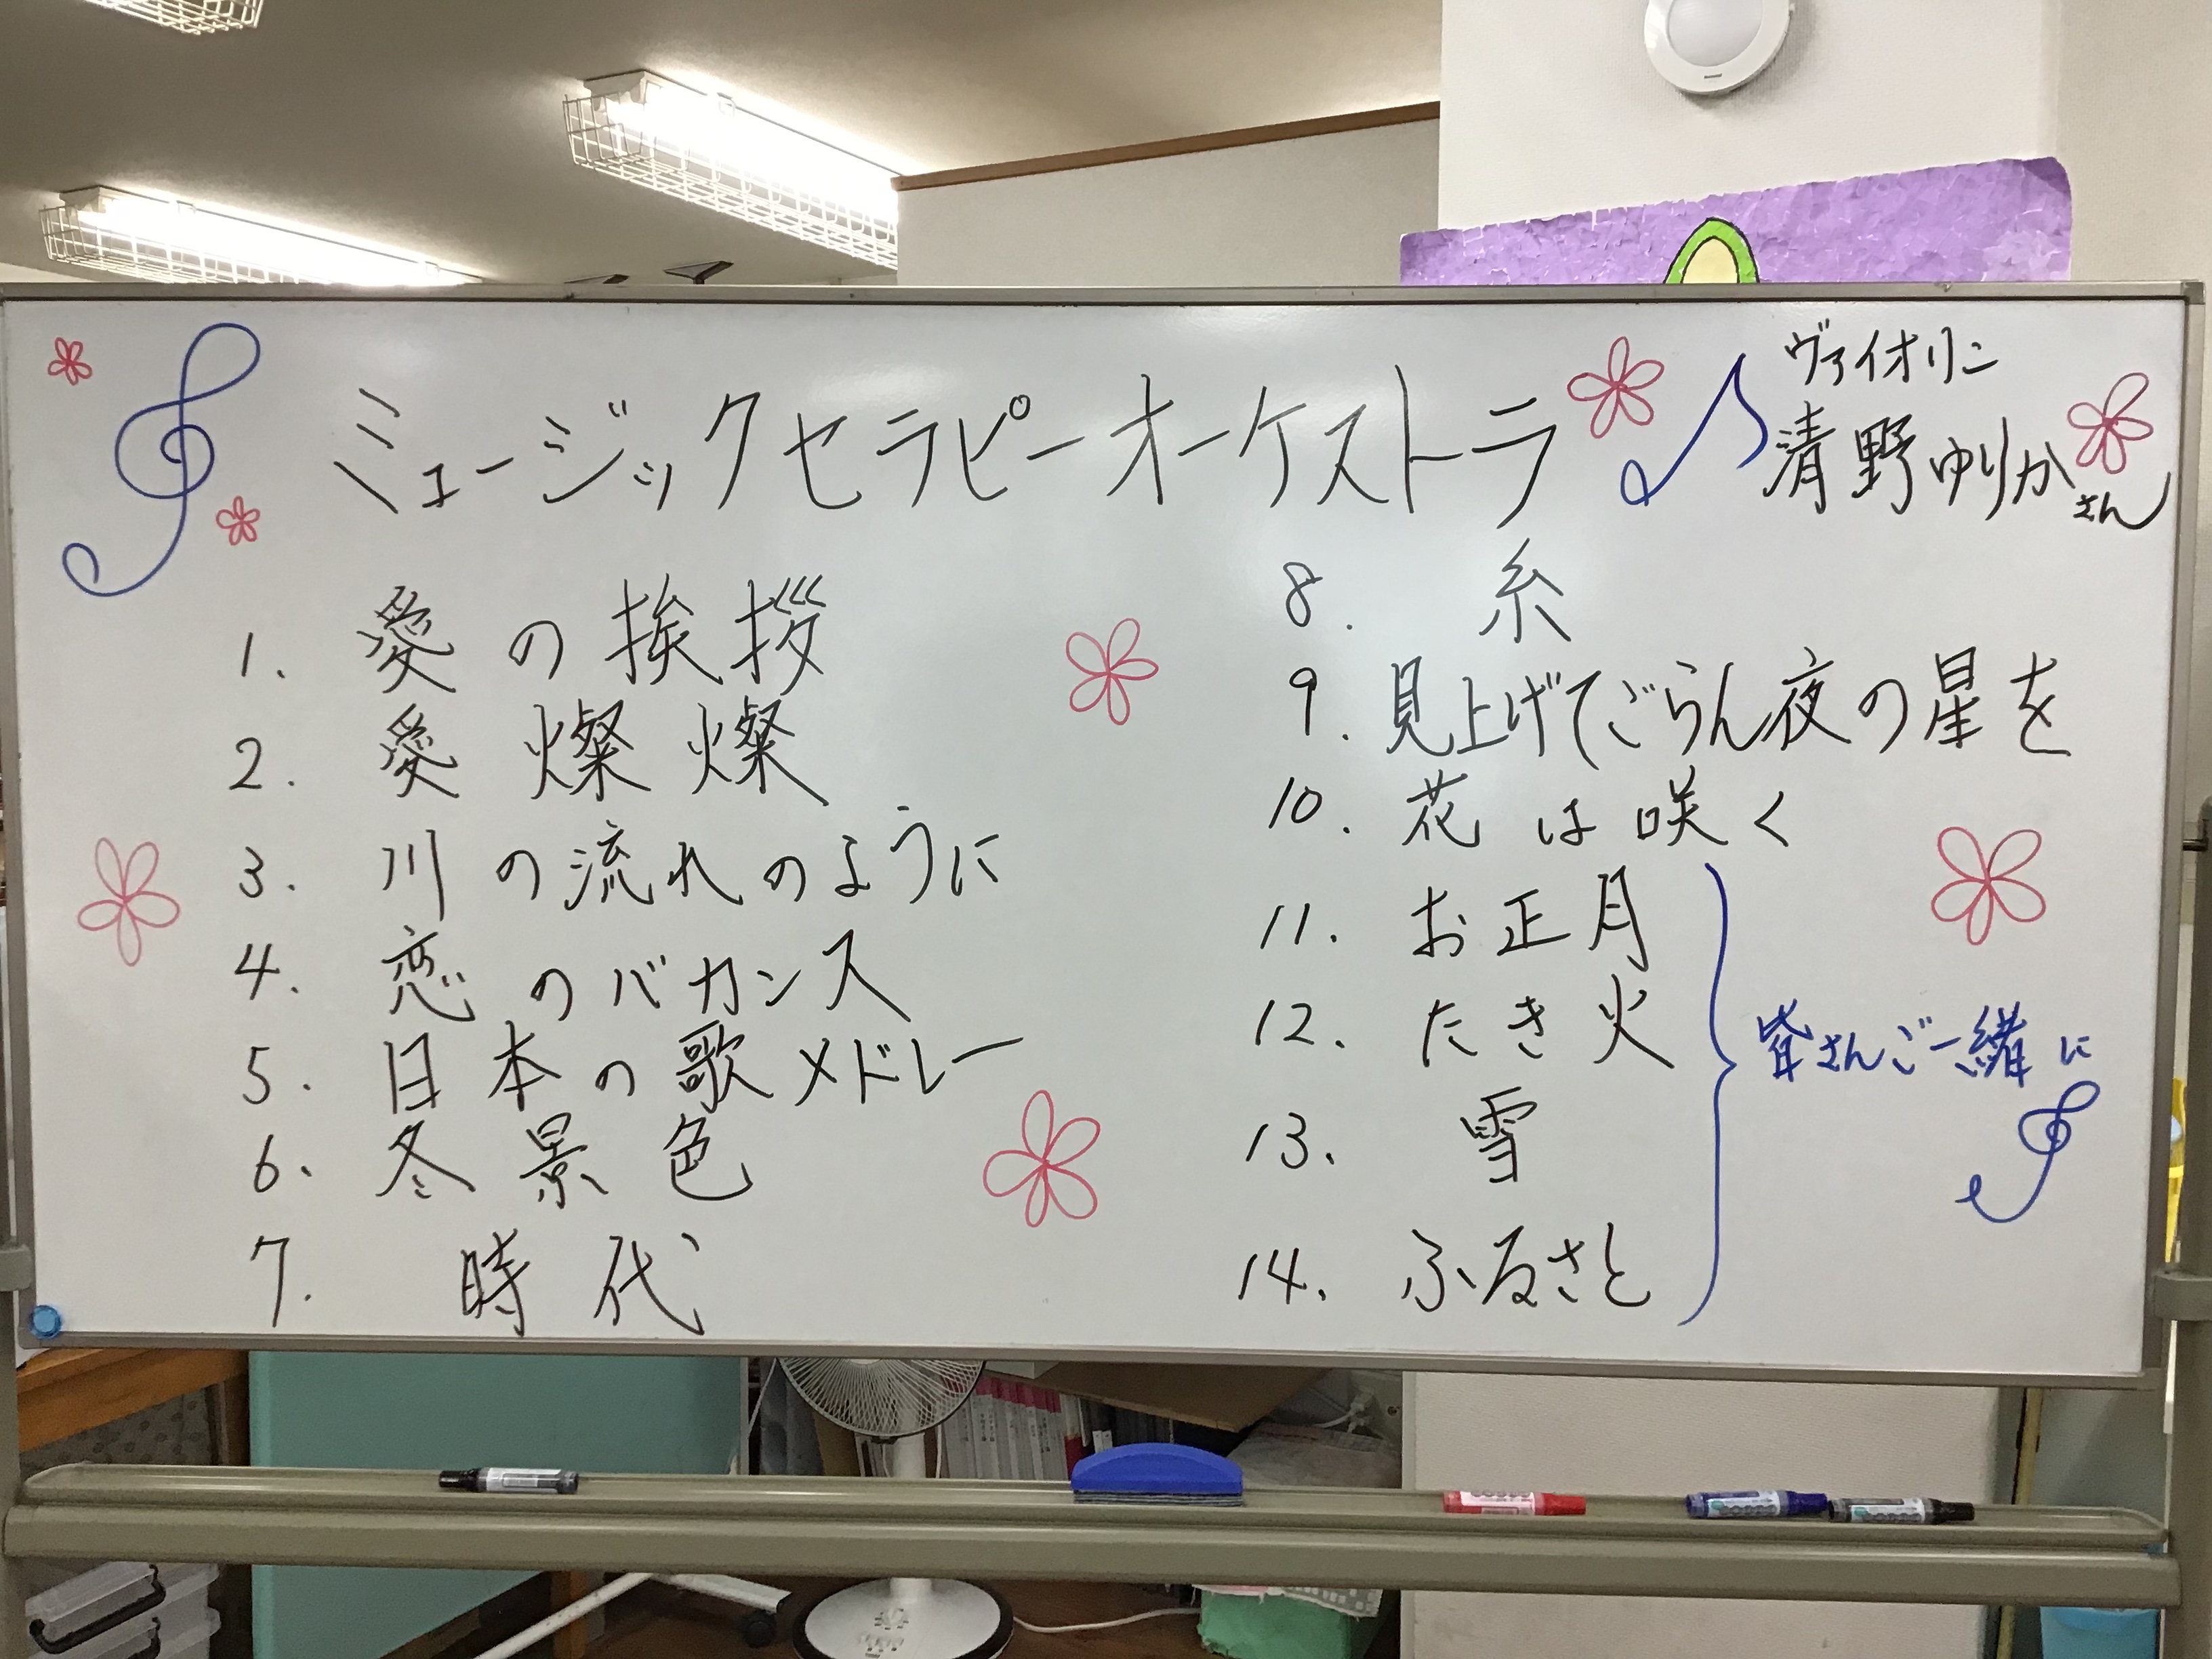 ミュージックセラピーオーケストラ
ヴァイオリン
清野ゆりかさん
1. 愛の挨拶
2. 愛燦燦
3. 川の流れのように
4. 恋のバカンス
5. 日本の歌メドレー
6. 冬景色
7. 時代
8. 糸
9. 見上げてごらん夜の星を
10. 花は咲く
11. お正月
12. たき火
13. 雪
14. ふるさと
皆さんご一緒に